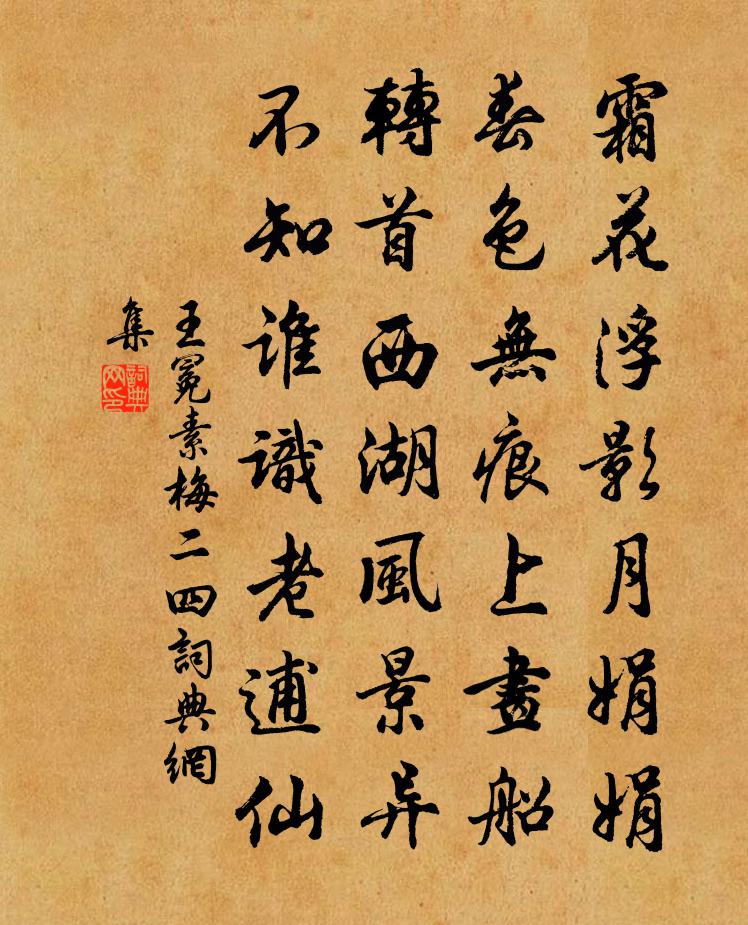 霜花浮影月娟娟
春色無痕上畫船
轉首西湖風景异
不知誰識老逋仙
王冕素梅二四詞典網
集
詞典
网印